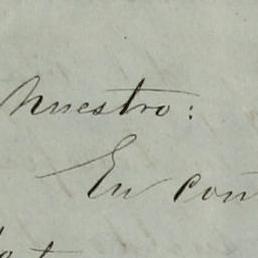 Nuestro:
En con